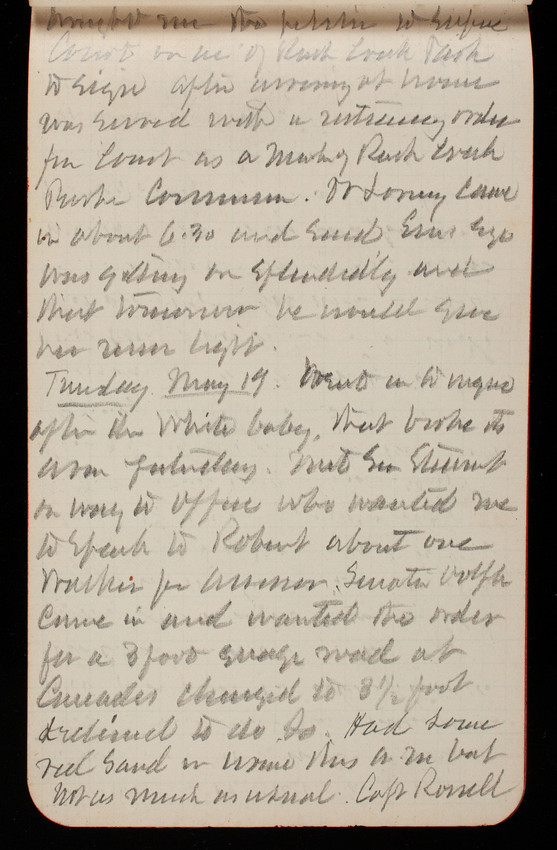 brought me the petition to Supreme
Court in re of Rock Creek Park
to sign after arriving at home
was served with a restraining order
from Court as a Memb of Rock Creek
Park Commission. Dr Loring came
in about 6.30 and said Ems eye
was getting on splendidly and
that tomorrow he would give
her more light.
Tuesday May 19. Went in to inquire
after the White baby, that broke its
arm Saturday. Met Gen Stewart
on way to office who wanted me
to speak to Robert about one
Walker for Assessor. Senator Dolph
came in and wanted the order
for a 3 foot gauge road at
Cascades changed to 3 1/2 foot
declined to do so. Had some
red sand in urine this a m but
not as much as usual. Capt Rossell